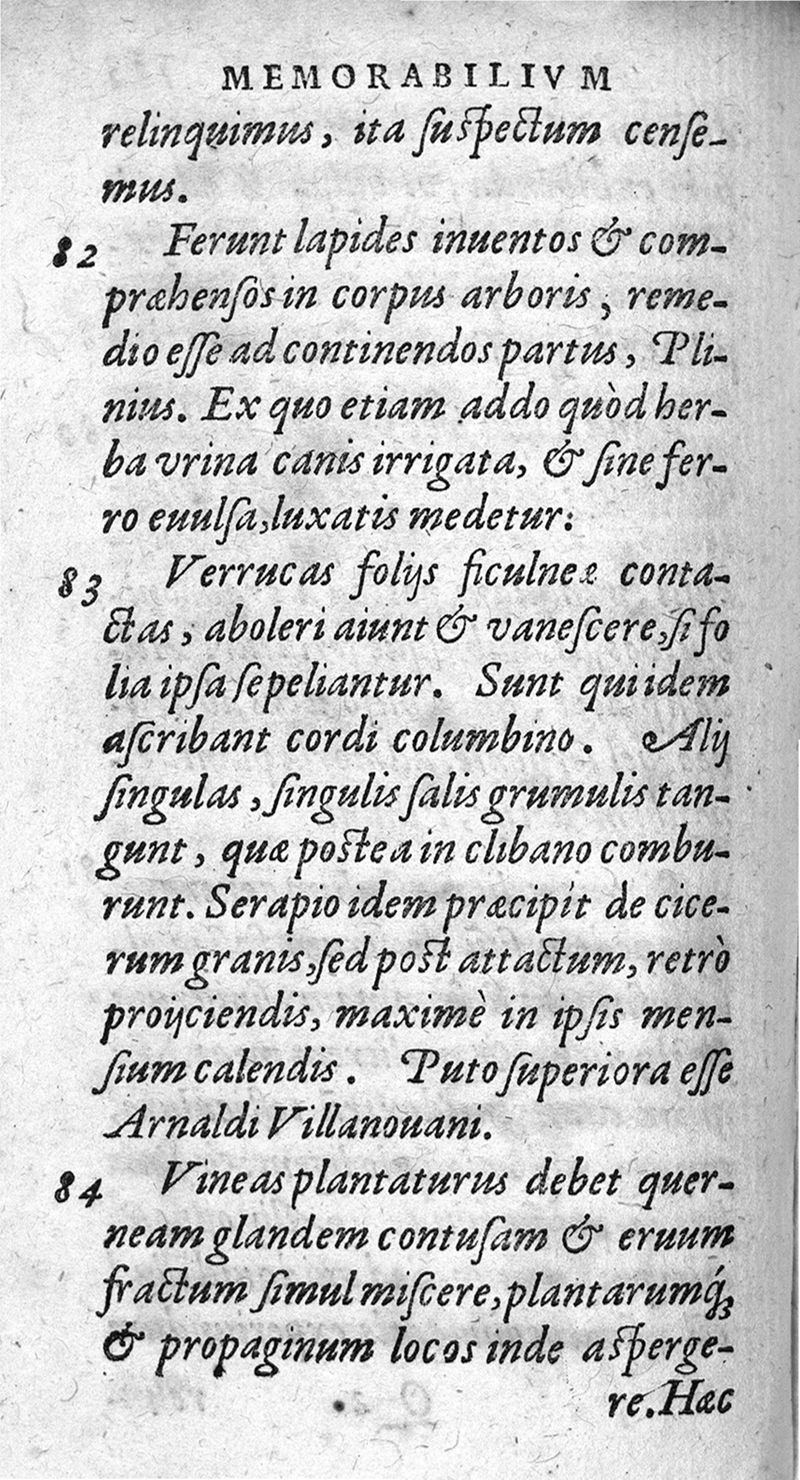 MEMORABILIVM
relinquimus, ita suspectum cense-
mus.
82 Ferunt lapides inuentos & com-
præhensos in corpus arboris, reme-
dio esse ad continendos partus, Pli-
nius. Ex quo etiam addo quòd her-
ba vrina canis irrigata, & sine fer-
ro euulsa, luxatis medetur:
83 Verrucas folijs ficulneæ conta-
ctas, aboleri aiunt & vanescere, si fo
lia ipsa sepeliantur. Sunt qui idem
ascribant cordi columbino. Alij
singulas, singulis salis grumulis tan-
gunt, quæ postea in clibano combu-
runt. Serapio idem præcipit de cice-
rum granis, sed post attactum, retrò
proijciendis, maximè in ipsis men-
sium calendis. Puto superiora esse
Arnaldi Villanouani.
84 Vineas plantaturus debet quer-
neam glandem contusam & eruum
fractum simul miscere, plantarumq́;
& propaginum locos inde asperge-
re. Hæc